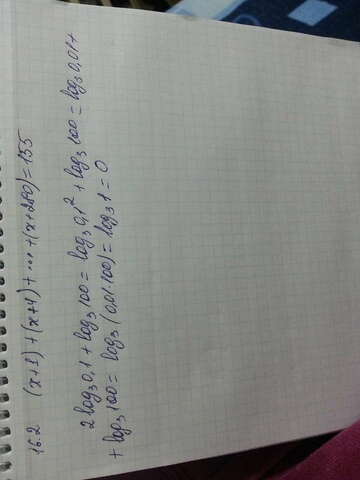 16.2 (x+1)+(x+4)+...+(x+280)=155
2log₃0,1+log₃100=log₃0,1²+log₃100=log₃0,01+
+log₃100=log₃(0,01·100)=log₃1=0